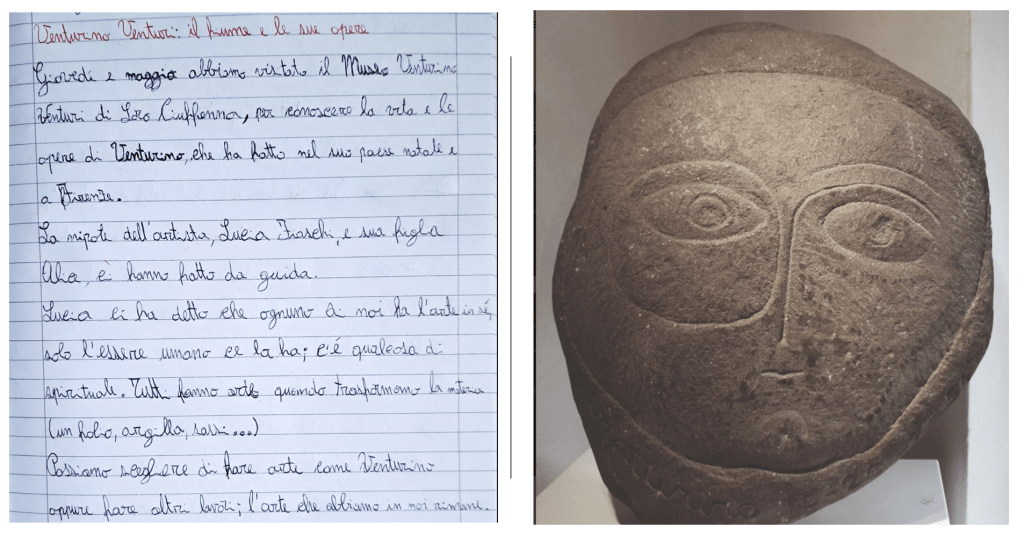 Venturino Venturi: il fiume e le sue opere
Giovedì 2 maggio abbiamo visitato il Museo Venturino
Venturi di Loro Ciuffenna, per conoscere la vita e le
opere di Venturino, che ha fatto nel suo paese natale e
a Firenze.
La nipote dell'artista, Lucia Fiaschi, e sua figlia
Alia, ci hanno fatto da guida.
Lucia ci ha detto che ognuno di noi ha l'arte in sé,
solo l'essere umano ce la ha; c'è qualcosa di
spirituale. Tutti fanno arte quando trasformano la materia
(un foglio, argilla, sassi...)
Possiamo scegliere di fare arte come Venturino
oppure fare altri lavori; l'arte che abbiamo in noi rimane.